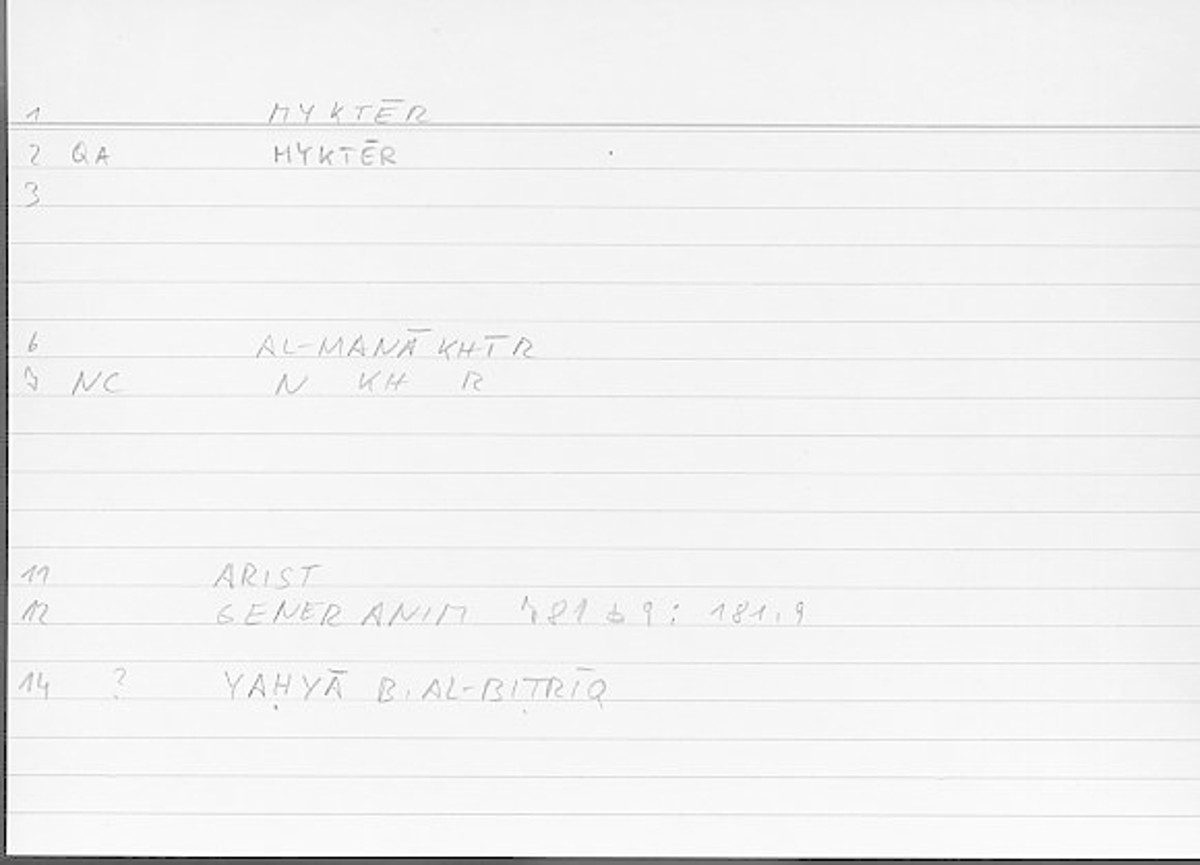 1 MYKTĒR
2 QA MYKTĒR
3
6 AL-MANĀKHIR
7 NC N KH R
11 ARIST
12 GENER ANIM 781 b 9 : 181,9
14 ? YAḤYĀ B. AL-BIṬRĪQ